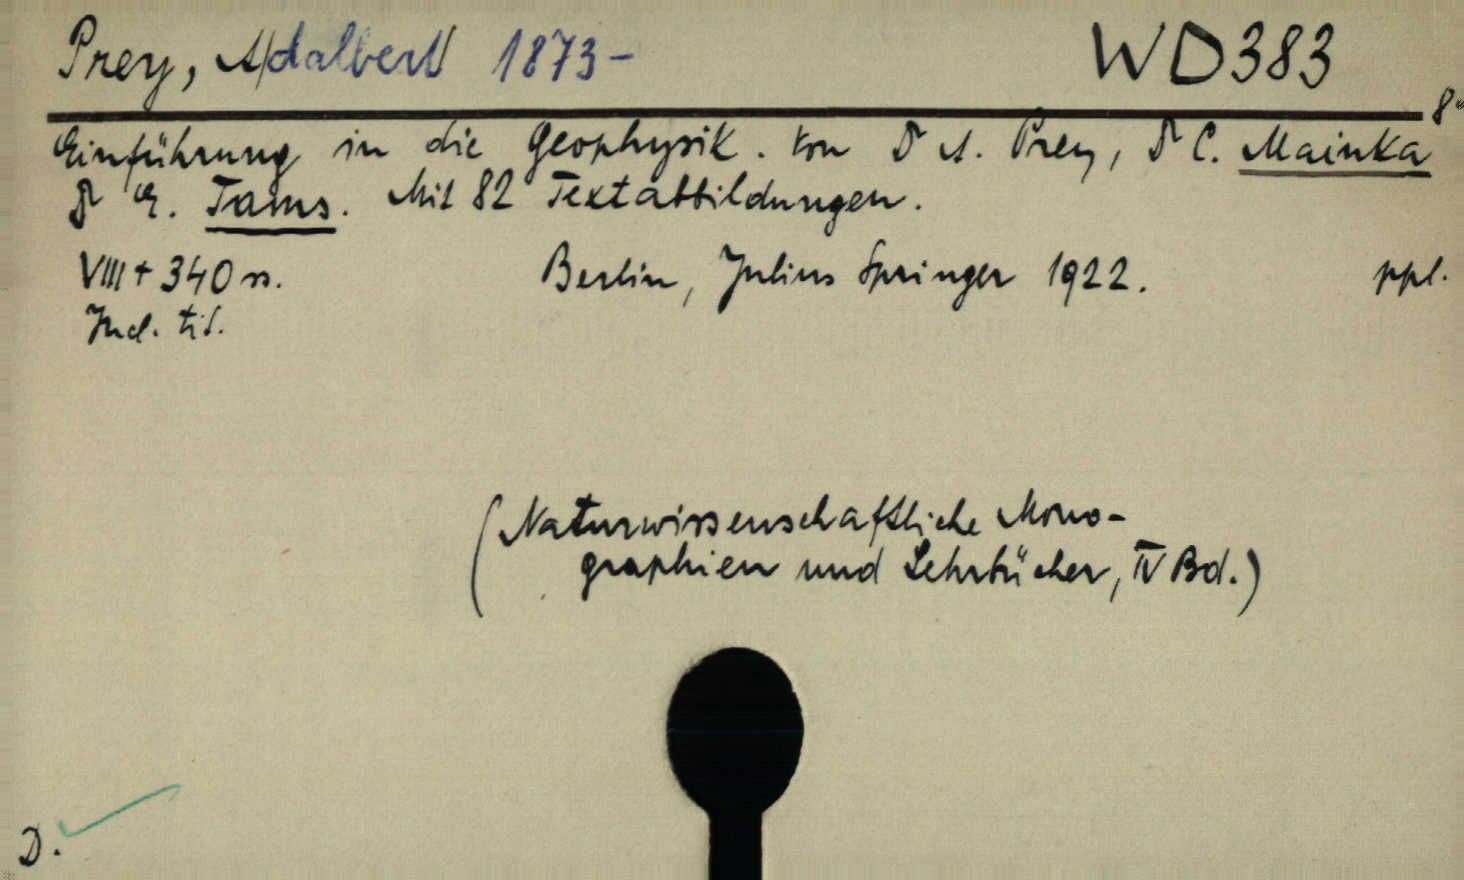 Prey, Adalbert 1873- WD383
8°
Einführung in die Geophysik. Von Dr A. Prey, Dr C. Mainka
Dr E. Tams. Mit 82 Textabbildungen.
VIII + 340 ss. Berlin, Julius Springer 1922. ppl.
Ind. tid.
(Naturwissenschaftliche Mono-
graphien und Lehrbücher, IV Bd.)
D.